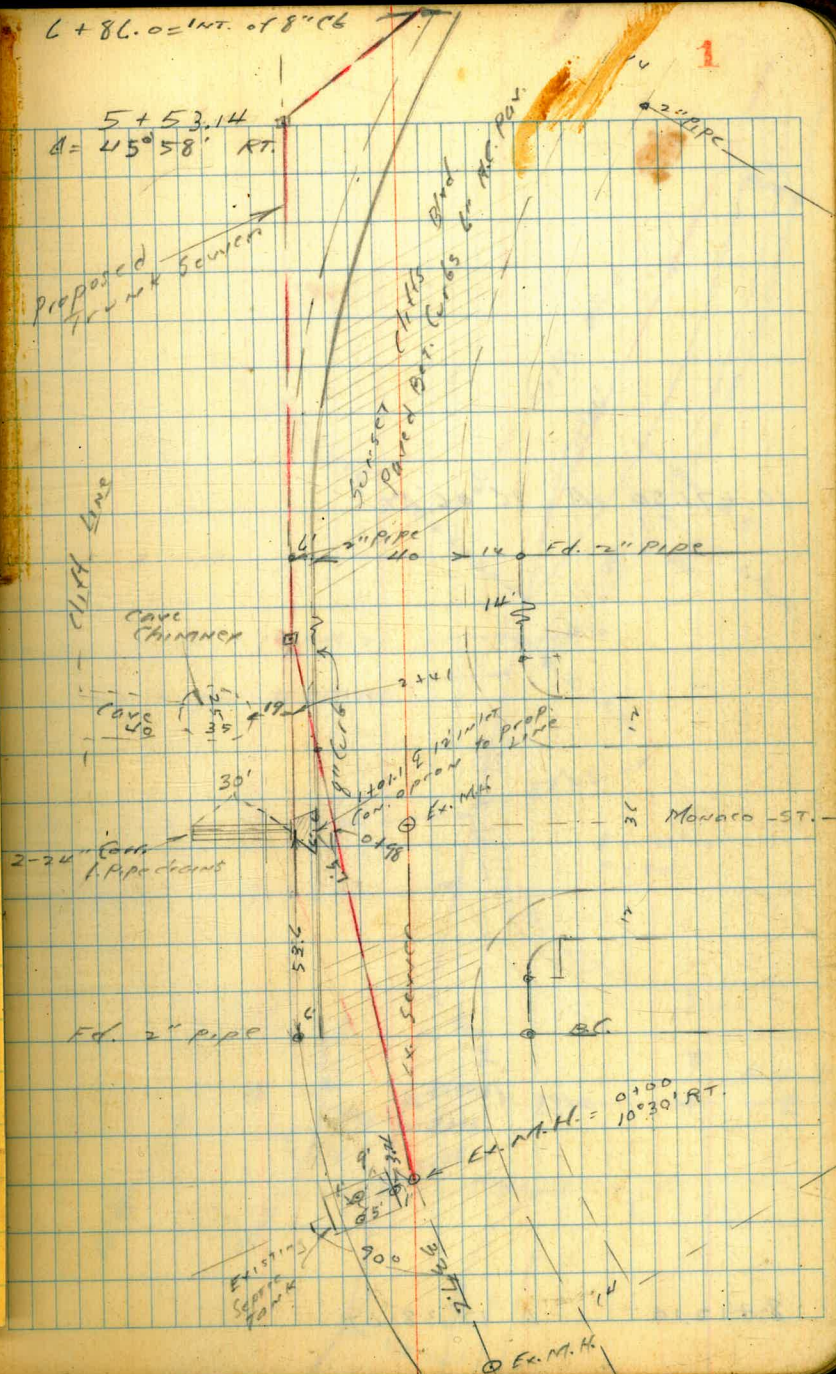 6 + 86.0 = INT. of 8" Cb
1
5 + 53.14
Δ = 45°58' RT.
2" Pipe
Proposed
Trunk Sewer
Sunset Cliffs Blvd
Paved Bet. Curbs 6" A.C. Pav.
Cliff Line
6'
2" Pipe
40
14
Fd. 2" Pipe
14'
Cave
Chimney
2+41
Cave
40
25
35
19
8" Curb
12
1+01.1 ℄ 12' INLET
Con. apron to prop.
LINE
30'
Ex. M.H.
36
Monaco ST.
0+98
2-24" Corr.
Pipe drains
12
53.6
Ex. Sewer
6'
Fd. 2" Pipe
B.C.
Ex. M.H. = 0+00
10°30' RT.
Existing
Septic
TANK
90°
14
Ex. M.H.